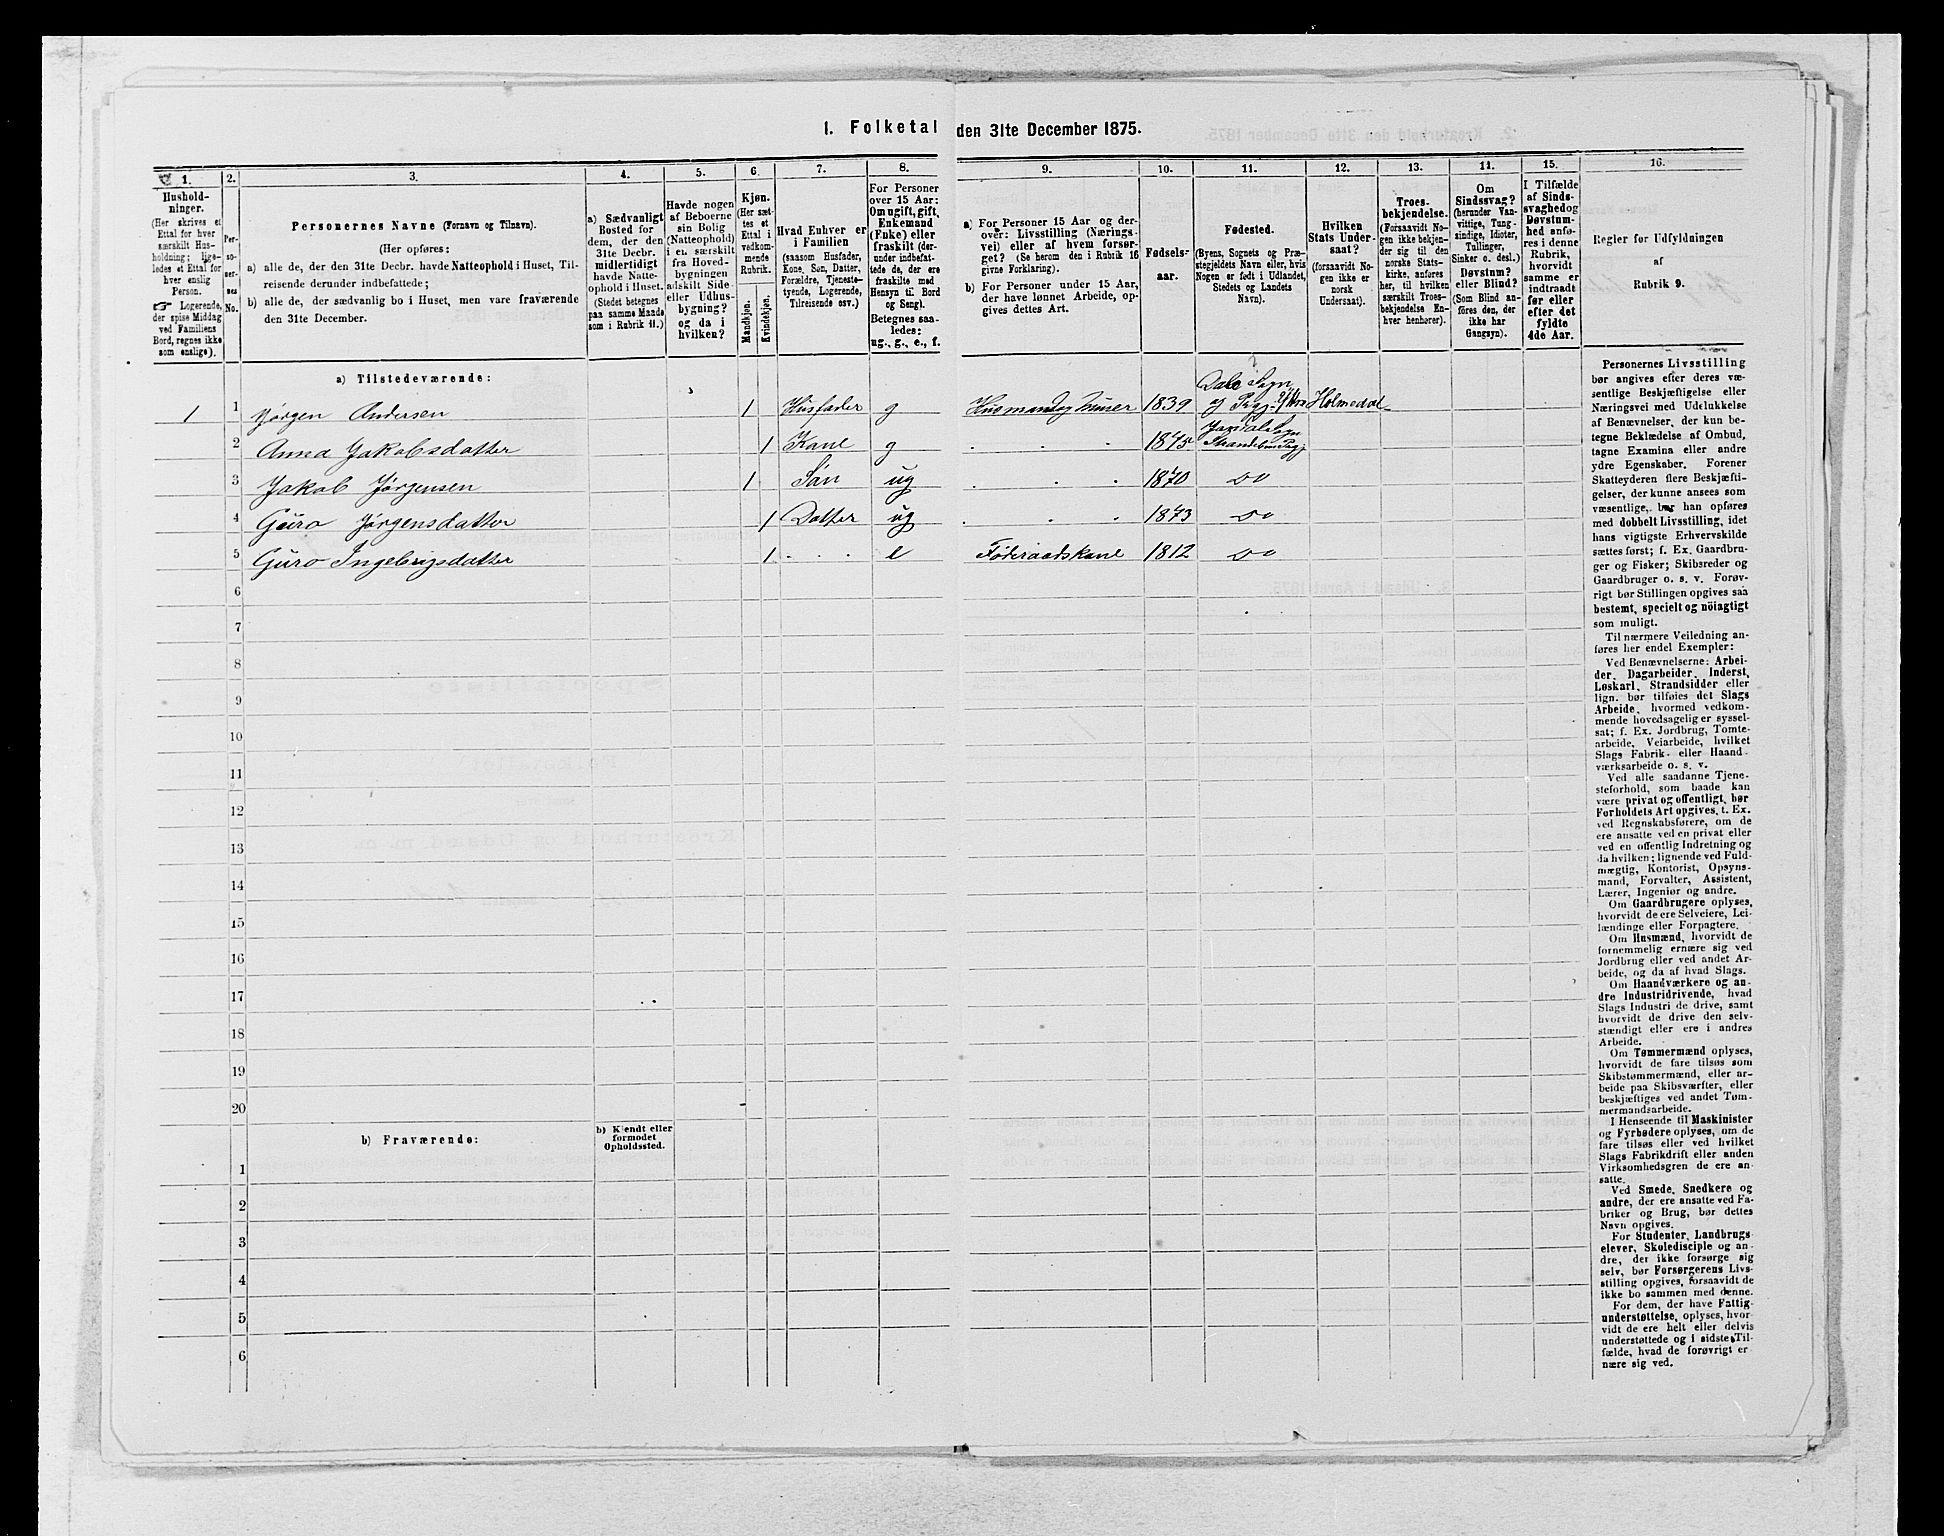 1. Folketal den 31te December 1875.
1. 2. 3. 4. 5. 6. 7. 8. 9. 10. 11. 12. 13. 14. 15. 16.
Hushold-
ninger.
(Her skrives et
Ettal for hver
særskilt Hus-
holdning; lige-
ledes et Ettal for
hver enslig
Person.
☞ Logerende,
der spise Middag
ved Familiens
Bord, regnes ikke
som enslige).
Per-
so-
ner-
nes
No.
Personernes Navne (Fornavn og Tilnavn).
(Her opføres:
a) alle de, der den 31te Decbr. havde Natteophold i Huset, Til-
reisende derunder indbefattede;
b) alle de, der sædvanlig bo i Huset, men vare fraværende
den 31te December.
a) Sædvanligt
Bosted for
dem, der den
31te Decbr.
midlertidigt
havde Natte-
ophold i Huset.
(Stedet betegnes
paa samme Maade
som i Rubrik 11.)
Havde nogen
af Beboerne
sin Bolig
(Natteophold)
i en særskilt
fra Hoved-
bygningen
adskilt Side-
eller Udhus-
bygning?
og da i
hvilken?
Kjøn.
(Her sæt-
tes et
Ettal i
vedkom-
mende
Rubrik.)
Mandkjøn.
Kvindekjøn.
Hvad Enhver er
i Familien
(saasom Husfader,
Kone, Søn, Datter,
Forældre, Tjeneste-
tyende, Logerende,
Tilreisende osv.)
For Personer
over 15 Aar:
Om ugift, gift,
Enkemand
(Enke) eller
fraskilt (der-
under indbefat-
tede de, der ere
fraskilte med
Hensyn til Bord
og Seng).
Betegnes saa-
ledes:
ug., g., e., f.
a) For Personer 15 Aar og der-
over: Livsstilling (Nærings-
vei) eller af hvem forsør-
get? (Se herom den i Rubrik 16
givne Forklaring).
b) For Personer under 15 Aar,
der have lønnet Arbeide, op-
gives dettes Art.
Fødsels-
aar.
Fødested.
(Byens, Sognets og Præ-
stegjeldets Navn eller, hvis
Nogen er født i Udlandet,
Stedets og Landets
Navn).
Hvilken
Stats Under-
saat?
(forsaavidt No-
gen ikke er
norsk
Undersaat).
Troes-
bekjendelse.
(Forsaavidt No-
gen ikke bekjen-
der sig til den
norske Stats-
kirke, anføres
her, til hvilken
særskilt Troes-
bekjendelse En-
hver henhører).
Om
Sindssvag?
(herunder Van-
vittige, Tung-
sindige, Idioter,
Tullinger,
Sinker o. desl.)
Døvstum?
eller Blind?
(Som Blind an-
føres den, der
ikke har
Gangsyn).
I Tilfælde
af Sinds-
svaghed og
Døvstum-
hed anfø-
res i denne
Rubrik,
hvorvidt
samme er
indtraadt
før eller
efter det
fyldte
4de Aar.
Regler for Udfyldningen
af
Rubrik 9.
a) Tilstedeværende:
1 1 Jørgen Andersen 1 Husfader g Husmand og Muser 1839 Dale Sogn og Prgj. Holmedal
2 Anna Jakobsdatter 1 Kone g 1845 Sogn
3 Jakob Jørgensen 1 Søn ug 1870 Do
4 Guro Jørgensdatter 1 Datter ug 1873 Do
5 Guro Ingebrigsdatter 1 e Føderaadskone 1812 Do
6
7
8
9
10
11
12
13
14
15
16
17
18
19
20
b) Fraværende:
b) Kjendt eller
formodet
Opholdssted.
1
2
3
4
5
6
Personernes Livsstilling
bør angives efter deres væ-
sentlige Beskjæftigelse eller
Næringsvei med Udelukkelse
af Benævnelser, der kun be-
tegne Beklædelse af Ombud,
tagne Examina eller andre
ydre Egenskaber. Forener
Skatteyderen flere Beskjæfti-
gelser, der kunne ansees som
væsentlige, bør han opføres
med dobbelt Livsstilling, idet
hans vigtigste Erhvervskilde
sættes først; f. Ex. Gaardbru-
ger og Fisker; Skibsreder og
Gaardbruger o. s. v. Forøv-
rigt bør Stillingen opgives saa
bestemt, specielt og nöiagtigt
som muligt.
Til nærmere Veiledning an-
føres her endel Exempler:
Ved Benævnelserne: Arbei-
der, Dagarbeider, Inderst,
Løskarl, Strandsidder eller
lign. bør tilføies det Slags
Arbeide, hvormed vedkom-
mende hovedsagelig er syssel-
sat; f. Ex. Jordbrug, Tomte-
arbeide, Veiarbeide, hvilket
Slags Fabrik- eller Haand-
værksarbeide o. s. v.
Ved alle saadanne Tjene-
steforhold, som baade kan
være privat og offentligt, bør
Forholdets Art opgives, t. Ex.
ved Regnskabsførere, om de
ere ansatte ved en privat eller
ved en offentlig Indretning og
da hvilken; lignende ved Fuld-
mægtig, Kontorist, Opsyns-
mand, Forvalter, Assistent,
Lærer, Ingeniør og andre.
Om Gaardbrugere oplyses,
hvorvidt de ere Selveiere, Lei-
lændinge eller Forpagtere.
Om Husmænd, hvorvidt de
fornemmelig ernære sig ved
Jordbrug eller ved andet Ar-
beide, og da af hvad Slags.
Om Haandværkere og an-
dre Industridrivende, hvad
Slags Industri de drive, samt
hvorvidt de drive den selv-
stændigt eller ere i andres
Arbeide.
Om Tømmermænd oplyses,
hvorvidt de fare tilsøs som
Skibstømmermænd, eller ar-
beide paa Skibsværfter, eller
beskjæftiges ved andet Tøm-
mermandsarbeide.
I Henseende til Maskinister
og Fyrbødere oplyses, om de
fare tilsøs eller ved hvilket
Slags Fabrikdrift eller anden
Virksomhedsgren de ere an-
satte.
Ved Smede, Snedkere og
andre, der ere ansatte ved Fa-
briker og Brug, bør dettes
Navn opgives.
For Studenter, Landbrugs-
elever, Skoledisciple og an-
dre, der ikke forsørge sig
selv, bør Forsørgerens Livs-
stilling opgives, forsaavidt de
ikke bo sammen med denne.
For dem, der have Fattig-
understøttelse, oplyses, hvor-
vidt de ere helt eller delvis
understøttede og i sidste Til-
fælde, hvad de forøvrigt er-
nære sig ved.